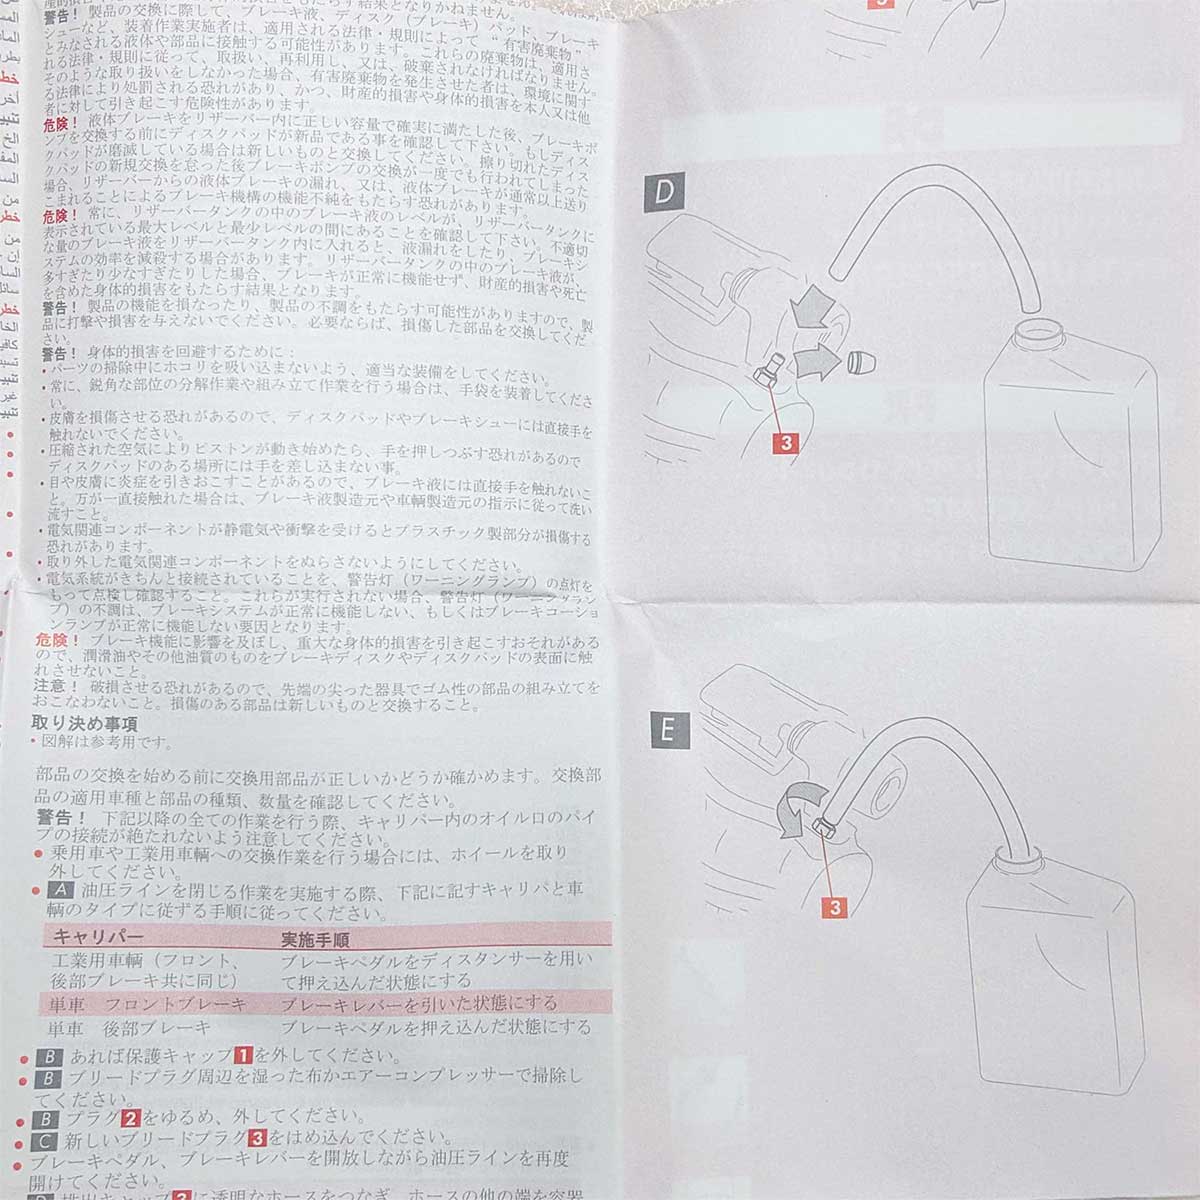 警告! 製品の交換に際して、ブレーキ液、ディスク(ブレーキ)パッド、ブレーキ
シューなど、装着作業実施者は、適用される法律・規則によって "有害廃棄物"
とみなされる液体や部品に接触する可能性があります。これらの廃棄物は、適用さ
れる法律・規則に従って、取扱い、再利用し、又は、破棄されなければなりません。
そのような取り扱いをしなかった場合、有害廃棄物を発生させた者は、環境に関す
る法律により処罰される恐れがあり、かつ、財産的損害や身体的損害を本人又は他
者に対して引き起こす危険性があります。
危険! 液体ブレーキをリザーバー内に正しい容量で確実に満たした後、ブレーキポ
ンプを交換する前にディスクパッドが新品である事を確認して下さい。もしディス
クパッドが磨滅している場合は新しいものと交換してください。擦り切れたディス
クパッドの新規交換を怠った後ブレーキポンプの交換が一度でも行われてしまった
場合、リザーバーからの液体ブレーキの漏れ、又は、液体ブレーキが通常以上送り
こまれることによるブレーキ機構の機能不純をもたらす恐れがあります。
危険! 常に、リザーバータンクの中のブレーキ液のレベルが、リザーバータンクに
表示されている最大レベルと最少レベルの間にあることを確認して下さい。不適切
な量のブレーキ液をリザーバータンク内に入れると、液漏れをしたり、ブレーキシ
ステムの効率を減殺する場合があります。リザーバータンクの中のブレーキ液が、
多すぎたり少なすぎたりした場合、ブレーキが正常に機能せず、財産的損害や死亡
を含めた身体的損害をもたらす結果となります。
警告! 製品の機能を損なったり、製品の不調をもたらす可能性がありますので、製
品に打撃や損害を与えないでください。必要ならば、損傷した部品を交換してくだ
さい。
警告! 身体的損害を回避するために:
・パーツの掃除中にホコリを吸い込まないよう、適当な装備をしてください。
・常に、鋭角な部位の分解作業や組み立て作業を行う場合は、手袋を装着してくださ
い。
・皮膚を損傷させる恐れがあるので、ディスクパッドやブレーキシューには直接手を
触れないでください。
・圧縮された空気によりピストンが動き始めたら、手を押しつぶす恐れがあるので
ディスクパッドのある場所には手を差し込まない事。
・目や皮膚に炎症を引きおこすことがあるので、ブレーキ液には直接手を触れないこ
と。万が一直接触れた場合は、ブレーキ液製造元や車輌製造元の指示に従って洗い
流すこと。
・電気関連コンポーネントが静電気や衝撃を受けるとプラスチック製部分が損傷する
恐れがあります。
・取り外した電気関連コンポーネントをぬらさないようにしてください。
・電気系統がきちんと接続されていることを、警告灯(ワーニングランプ)の点灯を
もって点検し確認すること。これらが実行されない場合、警告灯(ワーニングラン
プ)の不調は、ブレーキシステムが正常に機能しない、もしくはブレーキコーショ
ンランプが正常に機能しない要因となります。
危険! ブレーキ機能に影響を及ぼし、重大な身体的損害を引き起こすおそれがある
ので、潤滑油やその他油質のものをブレーキディスクやディスクパッドの表面に触
れさせないこと。
注意! 破損させる恐れがあるので、先端の尖った器具でゴム性の部品の組み立てを
おこなわないこと。損傷のある部品は新しいものと交換すること。
取り決め事項
・図解は参考用です。
部品の交換を始める前に交換用部品が正しいかどうか確かめます。交換部
品の適用車種と部品の種類、数量を確認してください。
警告! 下記以降の全ての作業を行う際、キャリパー内のオイル口のパイ
プの接続が絶たれないよう注意してください。
• 乗用車や工業用車輌への交換作業を行う場合には、ホイールを取り
外してください。
• A 油圧ラインを閉じる作業を実施する際、下記に記すキャリパと車
輌のタイプに従ずる手順に従ってください。
キャリパー 実施手順
工業用車輌(フロント、 ブレーキペダルをディスタンサーを用い
後部ブレーキ共に同じ) て押込んだ状態にする
単車 フロントブレーキ ブレーキレバーを引いた状態にする
単車 後部ブレーキ ブレーキペダルを押え込んだ状態にする
• B あれば保護キャップ1を外してください。
• B ブリードプラグ周辺を湿った布かエアーコンプレッサーで掃除し
てください。
• B プラグ2をゆるめ、外してください。
• C 新しいブリードプラグ3をはめ込んでください。
• ブレーキペダル、ブレーキレバーを開放しながら油圧ラインを再度
開けてください。
に透明なホースをつなぎ、ホースの他の端を容器
D
3
E
3